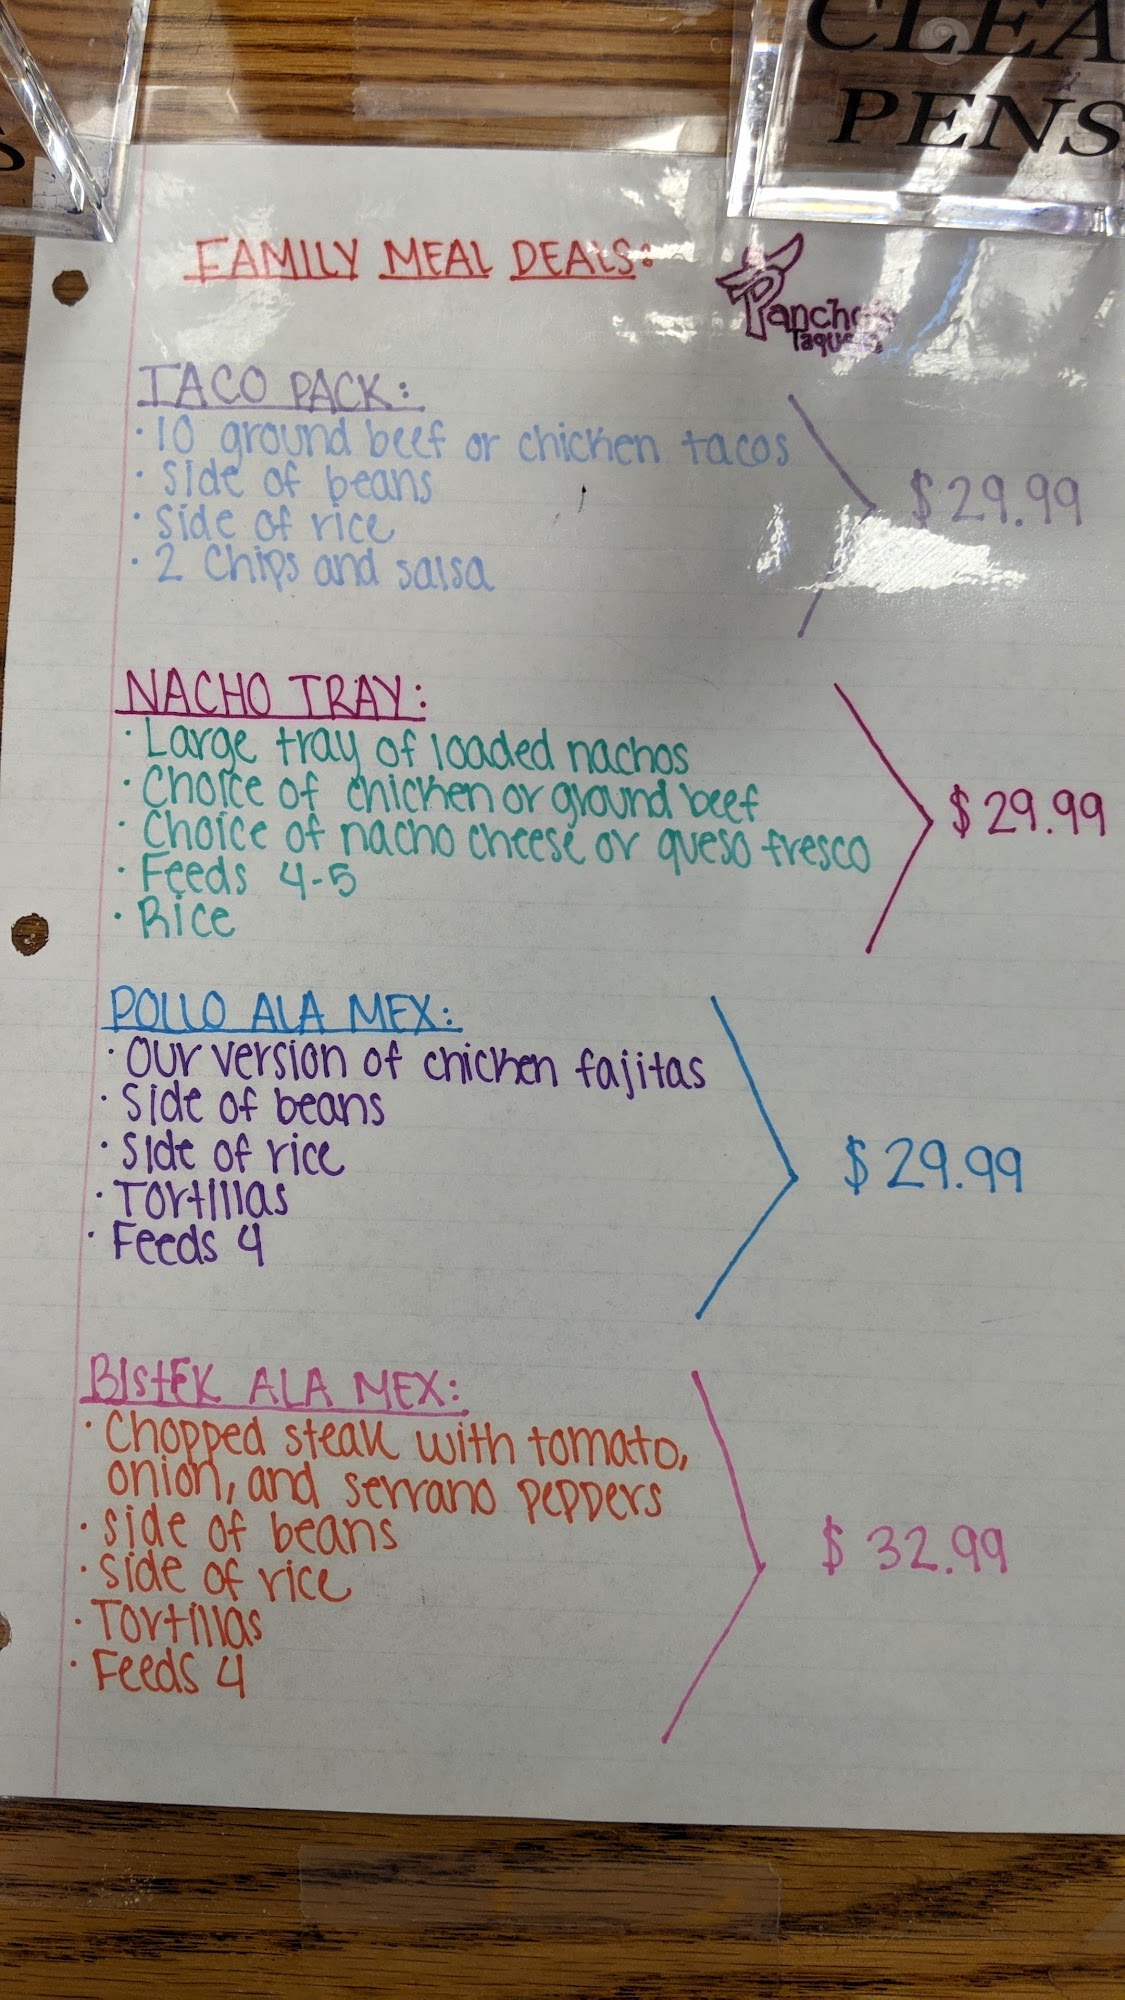 CLEA
PENS
S
FAMILY MEAL DEALS:
Pancho's
Taque
TACO PACK:
· 10 ground beef or chicken tacos
· Side of beans
· Side of rice
· 2 Chips and salsa
$29.99
NACHO TRAY:
· Large tray of loaded nachos
· Choice of chicken or ground beef
· Choice of nacho cheese or queso fresco
· Feeds 4-5
· Rice
$29.99
POLLO ALA MEX:
· Our version of chicken fajitas
· Side of beans
· Side of rice
· Tortillas
· Feeds 4
$29.99
BIStEK ALA MEX:
· Chopped steak with tomato,
onion, and serrano peppers
· Side of beans
· Side of rice
· Tortillas
· Feeds 4
$32.99